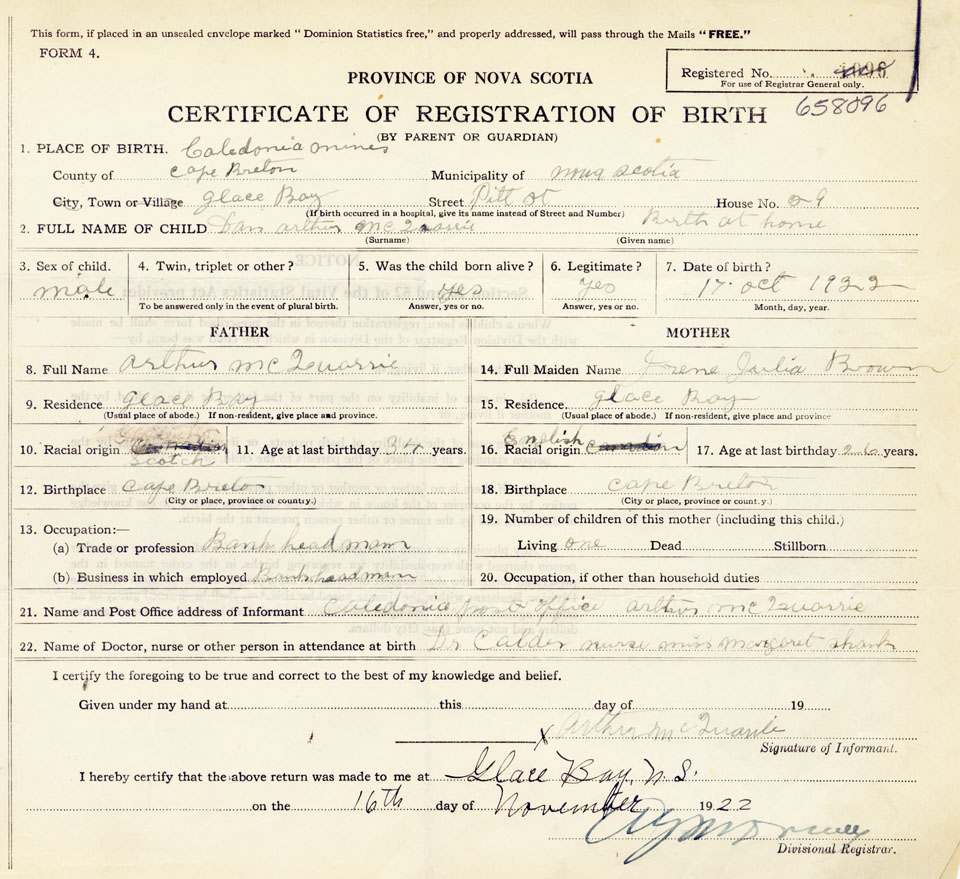 This form, if placed in an unsealed envelope marked "Dominion Statistics free," and properly addressed, will pass through the Mails "FREE."
FORM 4.
Registered No.
For use of Registrar General only.
PROVINCE OF NOVA SCOTIA
658096
CERTIFICATE OF REGISTRATION OF BIRTH
(BY PARENT OR GUARDIAN)
1. PLACE OF BIRTH. Caledonia mines
County of Cape Breton Municipality of nova scotia
City, Town or Village Glace Bay Street Pitt st House No. 29
(If birth occurred in a hospital, give its name instead of Street and Number) Birth at home
2. FULL NAME OF CHILD Dan arthur
(Surname) (Given name)
3. Sex of child. 4. Twin, triplet or other? 5. Was the child born alive? 6. Legitimate? 7. Date of birth?
male yes yes 17 oct 1922
To be answered only in the event of plural birth. Answer, yes or no. Answer, yes or no. Month, day, year.
FATHER MOTHER
8. Full Name arthur mc Quarrie 14. Full Maiden Name Irene Julia Brown
9. Residence Glace Bay 15. Residence Glace Bay
(Usual place of abode.) If non-resident, give place and province. (Usual place of abode.) If non-resident, give place and province
English
10. Racial origin 11. Age at last birthday 34 years. 16. Racial origin 17. Age at last birthday 26 years.
Scotch
12. Birthplace Cape Breton 18. Birthplace Cape Breton
(City or place, province or country.) (City or place, province or country.)
13. Occupation:— 19. Number of children of this mother (including this child.)
(a) Trade or profession Bank head man Living one Dead Stillborn
(b) Business in which employed Bank head man 20. Occupation, if other than household duties
21. Name and Post Office address of Informant Caledonia post office arthur mc Quarrie
22. Name of Doctor, nurse or other person in attendance at birth Dr Calder nurse miss margaret
I certify the foregoing to be true and correct to the best of my knowledge and belief.
Given under my hand at this day of 19
x Arthur mc Quarrie
Signature of Informant.
I hereby certify that the above return was made to me at Glace Bay, N.S.
on the 16th day of November 1922
Divisional Registrar.